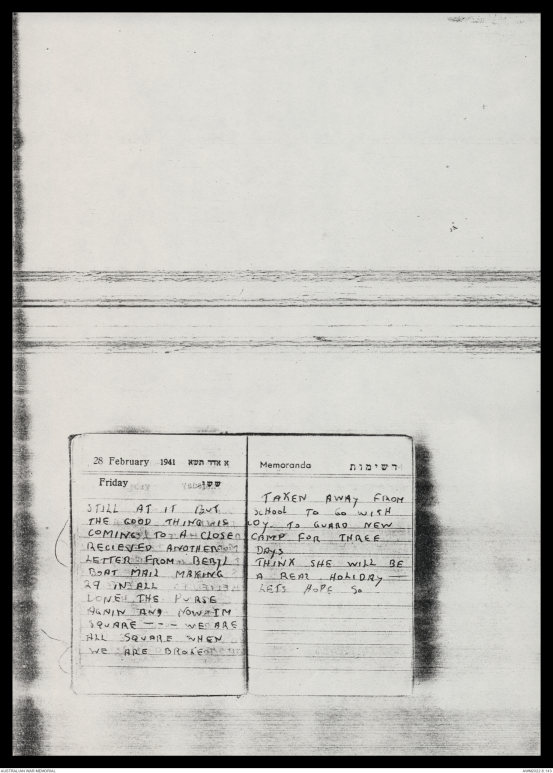 28 February 1941 א אדר תשא
Friday ששי
STILL AT IT BUT
THE GOOD THING IS
COMING TO A CLOSE
RECIEVED ANOTHER
LETTER FROM BERYL
BOAT MAIL MAKING
29 IN ALL
THE PURSE
AGAIN AND NOW IM
SQUARE — - — WE ARE
ALL SQUARE WHEN
WE ARE BROKE
Memoranda רשימות
TAKEN AWAY FROM
SCHOOL TO GO WITH
COY. TO GUARD NEW
CAMP FOR THREE
DAYS
THINK SHE WILL BE
A REAL HOLIDAY —
LETS HOPE SO
AUSTRALIAN WAR MEMORIAL